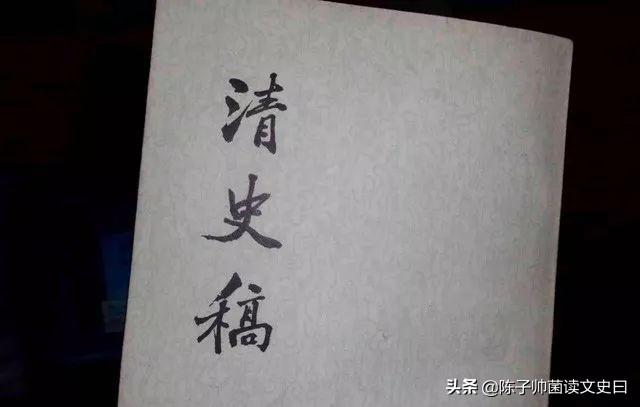 清史稿
头条 @陈子帅菌读文史曰